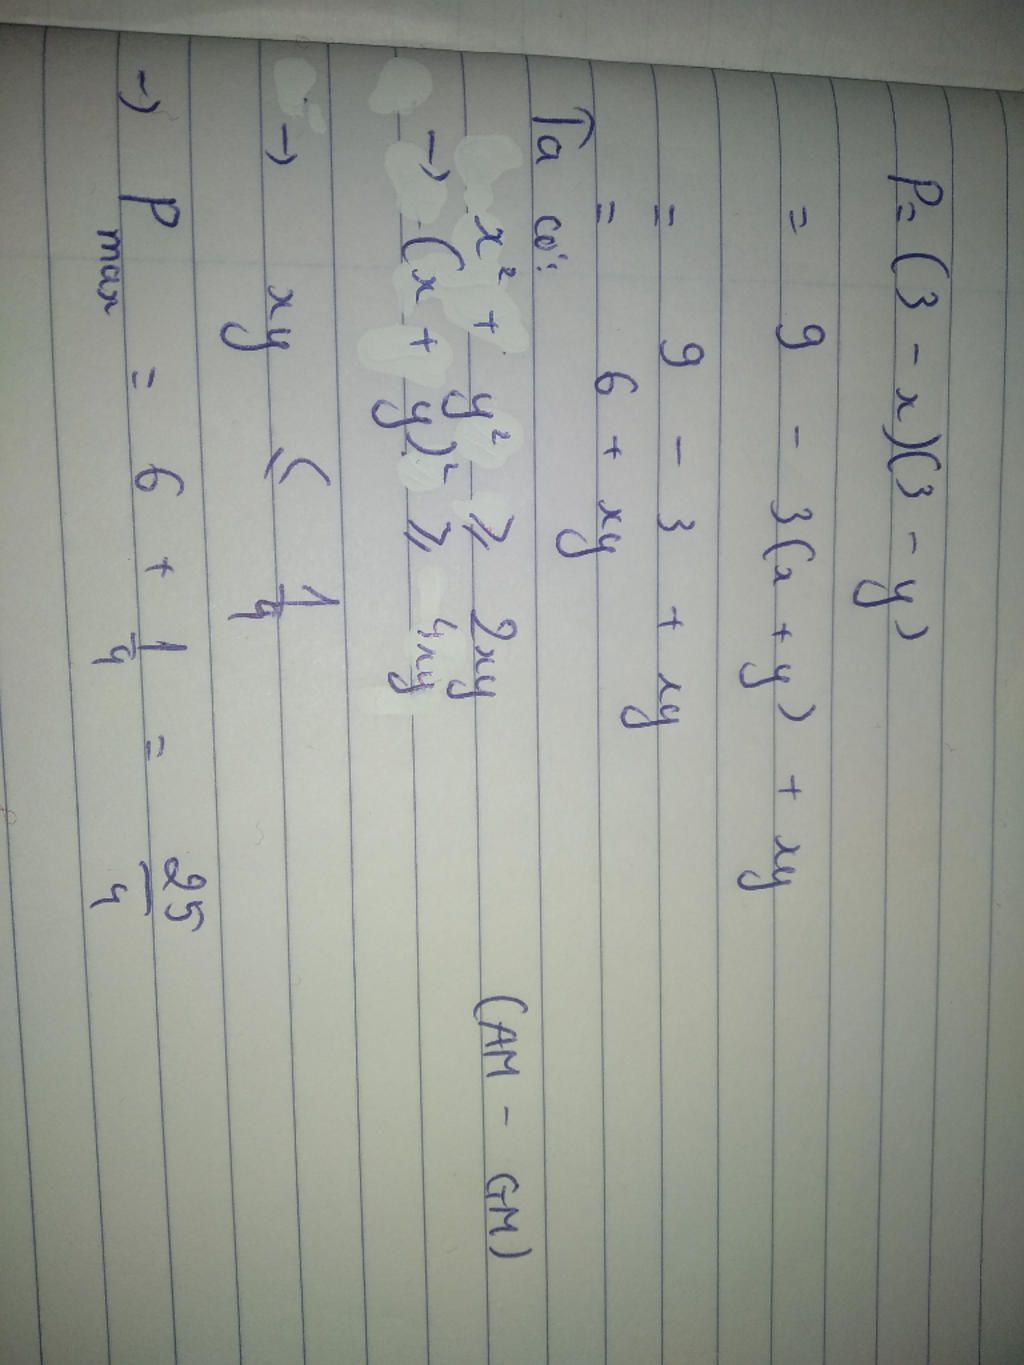 P = (3 - x)(3 - y)
= 9 - 3(x + y) + xy
= 9 - 3 + xy
= 6 + xy
Ta có:
x² + y² ⩾ 2xy (AM - GM)
→ (x + y)² ⩾ 4xy
→ xy ≤ 1/4
→ P max = 6 + 1/4 = 25/4